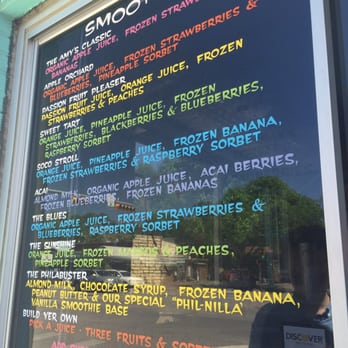 SMOO
THE AMY'S CLASSIC
ORGANIC APPLE JUICE, FROZEN STRAWBERRIES &
BANANAS
APPLE ORCHARD
ORGANIC APPLE JUICE, FROZEN STRAWBERRIES &
BLUEBERRIES, PINEAPPLE SORBET
PASSION FRUIT PLEASER
PASSION FRUIT JUICE, ORANGE JUICE, FROZEN
STRAWBERRIES & PEACHES
SWEET TART
ORANGE JUICE, PINEAPPLE JUICE, FROZEN
STRAWBERRIES, BLACKBERRIES & BLUEBERRIES,
RASPBERRY SORBET
SOCO STROLL
ORANGE JUICE, PINEAPPLE JUICE, FROZEN BANANA,
FROZEN STRAWBERRIES & RASPBERRY SORBET
ACAI
ALMOND MILK, ORGANIC APPLE JUICE, ACAI BERRIES,
FROZEN BLUEBERRIES, FROZEN BANANAS
THE BLUES
ORGANIC APPLE JUICE, FROZEN STRAWBERRIES &
BLUEBERRIES, RASPBERRY SORBET
THE SUNSHINE
ORANGE JUICE, FROZEN MANGOS & PEACHES,
PINEAPPLE SORBET
THE PHILABUSTER
ALMOND MILK, CHOCOLATE SYRUP, FROZEN BANANA,
PEANUT BUTTER & OUR SPECIAL "PHIL-NILLA"
VANILLA SMOOTHIE BASE
BUILD YER OWN
PICK A JUICE · THREE FRUITS & SORBET
DISCOVER